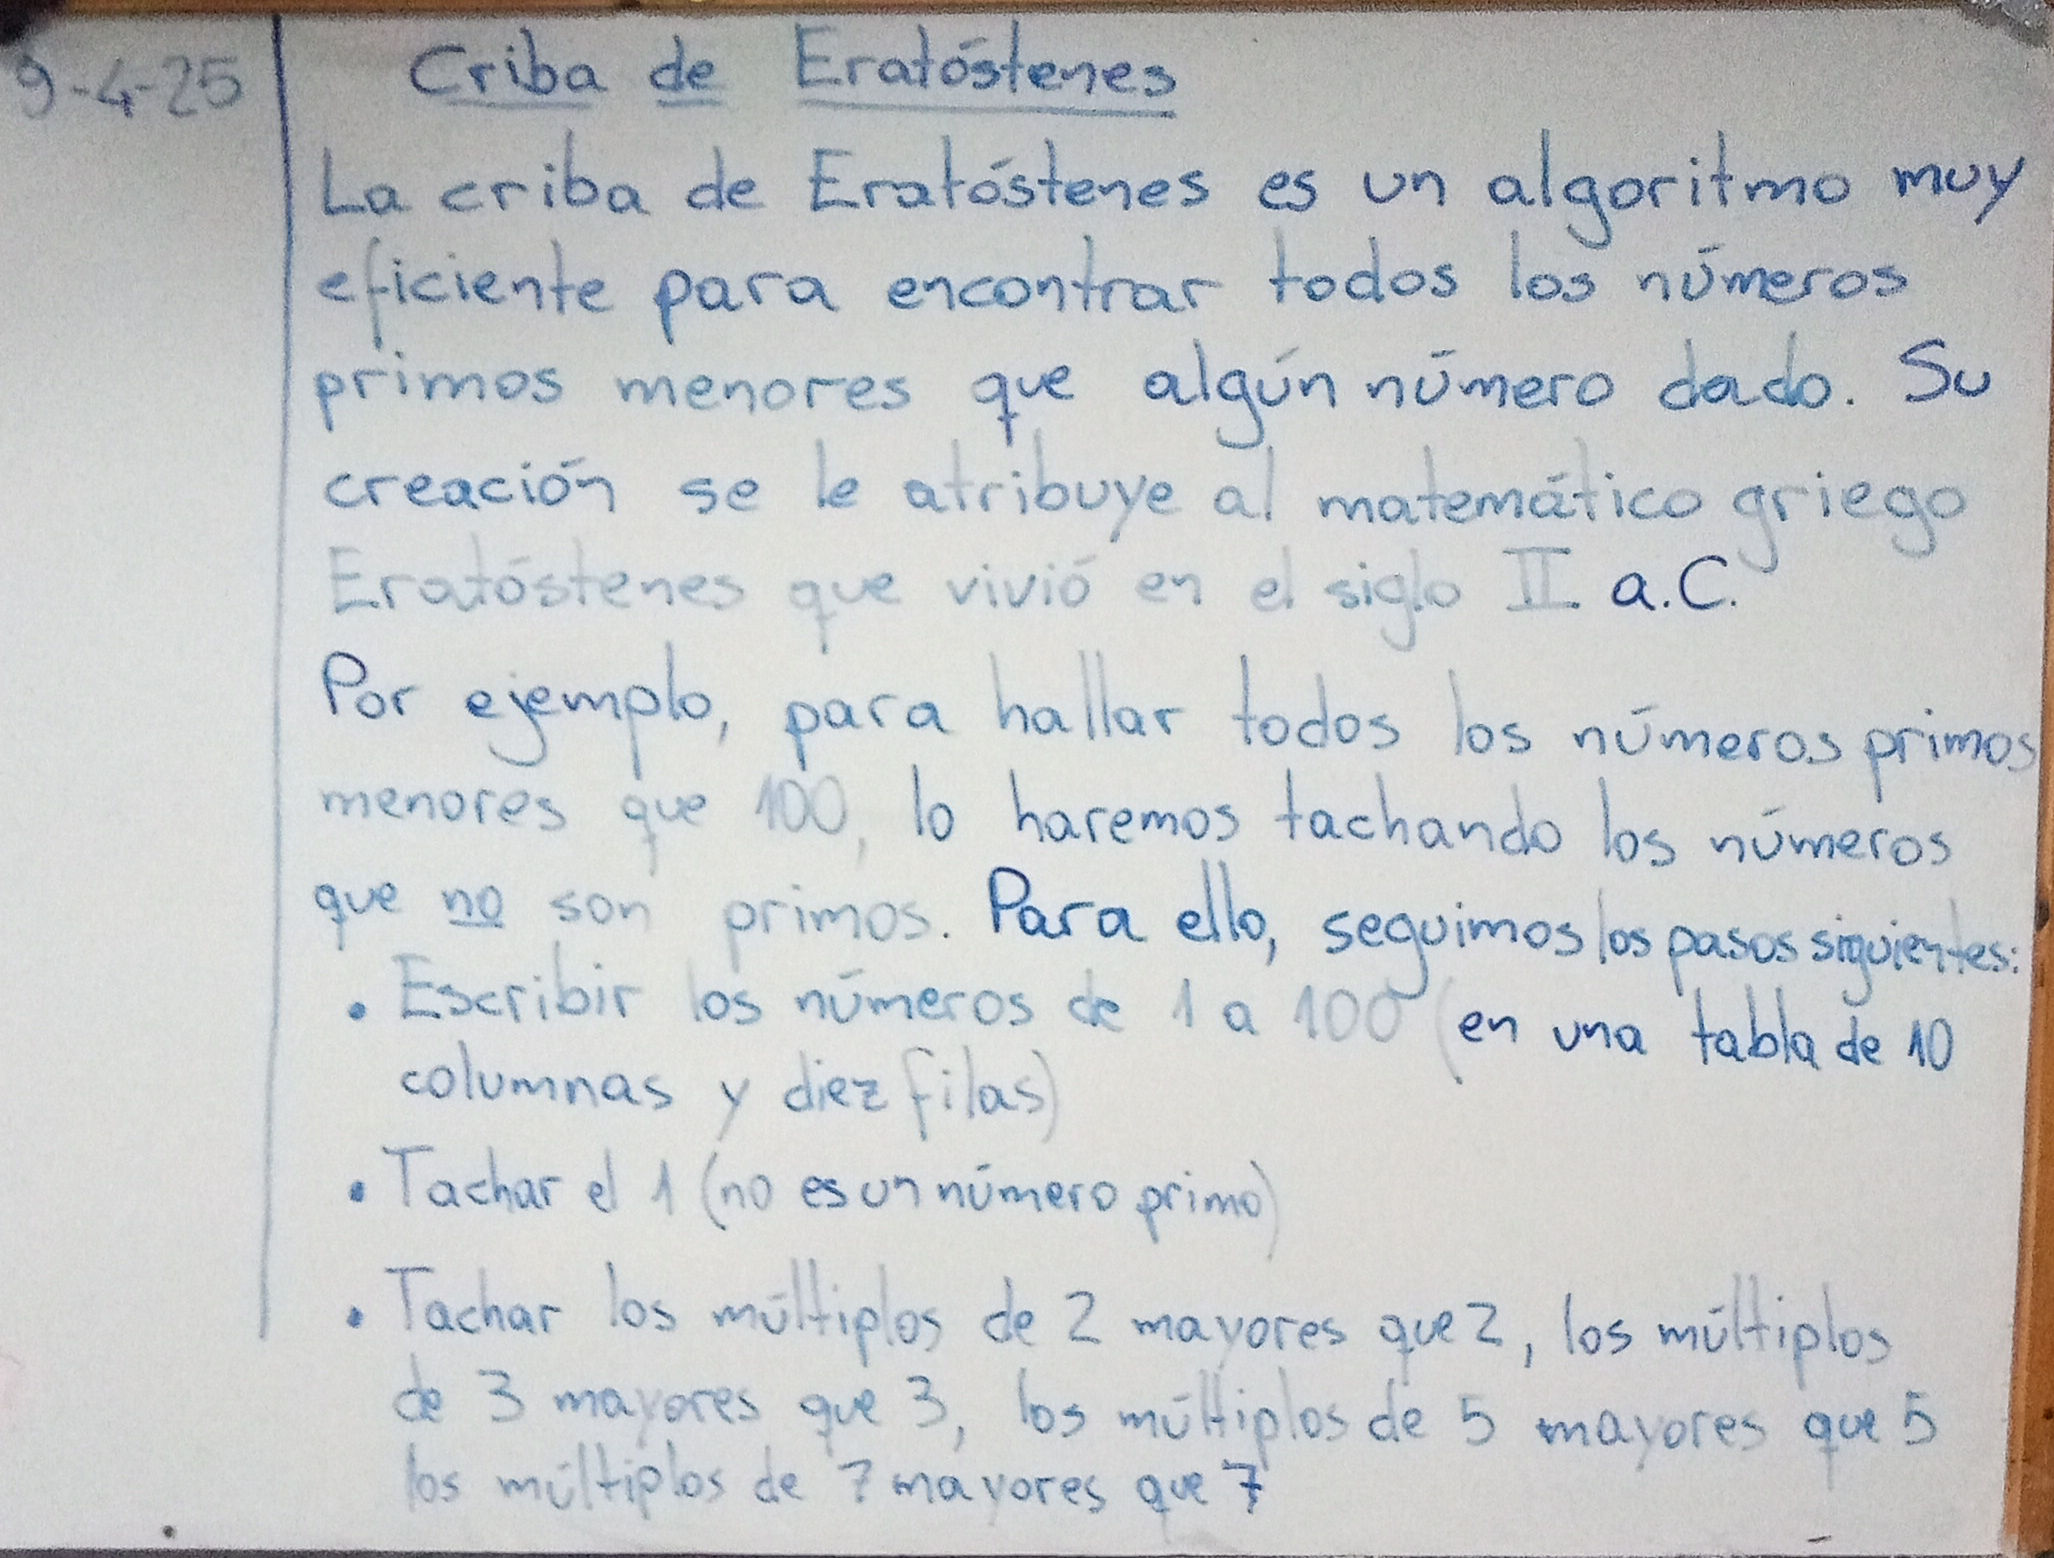 9-4-25
Criba de Eratóstenes
La criba de Eratóstenes es un algoritmo muy
eficiente para encontrar todos los números
primos menores que algún número dado. Su
creación se le atribuye al matemático griego
Eratóstenes que vivió en el siglo II a.C.
Por ejemplo, para hallar todos los números primos
menores que 100, lo haremos tachando los números
que no son primos. Para ello, seguimos los pasos siguientes:
• Escribir los números de 1 a 100 (en una tabla de 10
columnas y diez filas)
• Tachar el 1 (no es un número primo)
• Tachar los múltiplos de 2 mayores que 2, los múltiplos
de 3 mayores que 3, los múltiplos de 5 mayores que 5
los múltiplos de 7 mayores que 7